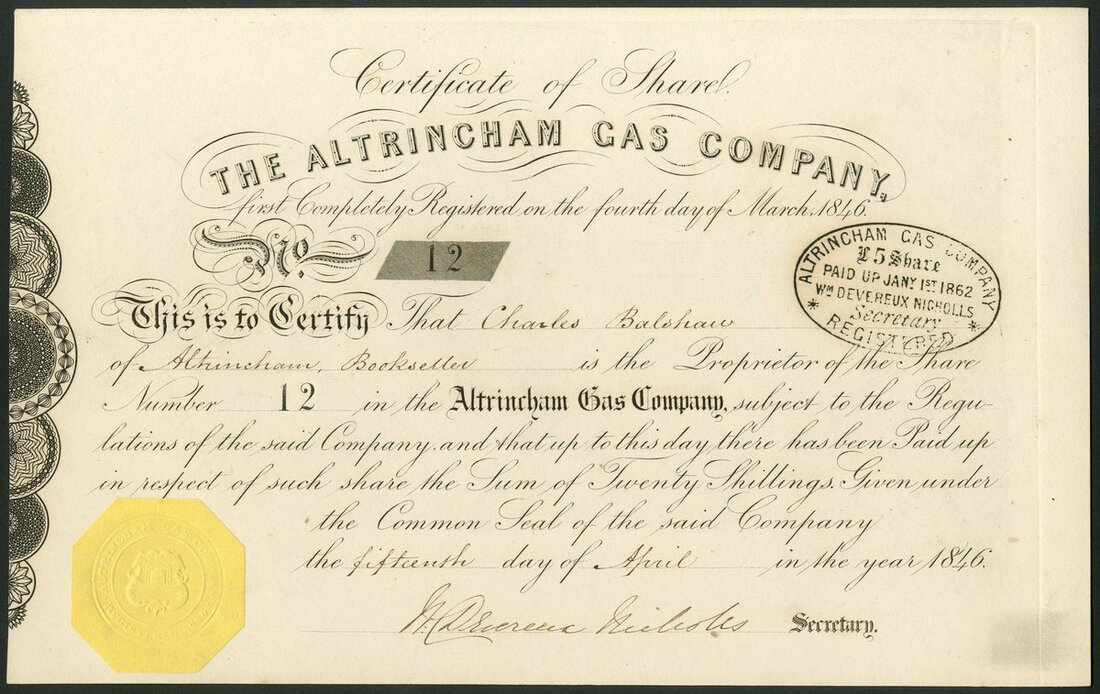 Certificate of Share.
THE ALTRINCHAM GAS COMPANY,
first Completely Registered on the fourth day of March, 1846.
No. 12
ALTRINCHAM GAS COMPANY
£5 Share
PAID UP JANY 1ST 1862
WM DEVEREUX NICHOLLS
Secretary
REGISTERED
This is to Certify That Charles Balshaw
of Altrincham, Bookseller is the Proprietor of the Share
Number 12 in the Altrincham Gas Company, subject to the Regu-
lations of the said Company, and that up to this day there has been Paid up
in respect of such share the Sum of Twenty Shillings. Given under
the Common Seal of the said Company
the fifteenth day of April in the year 1846.
ALTRINCHAM GAS
REGISTERED
W. Devereux Nicholls Secretary.